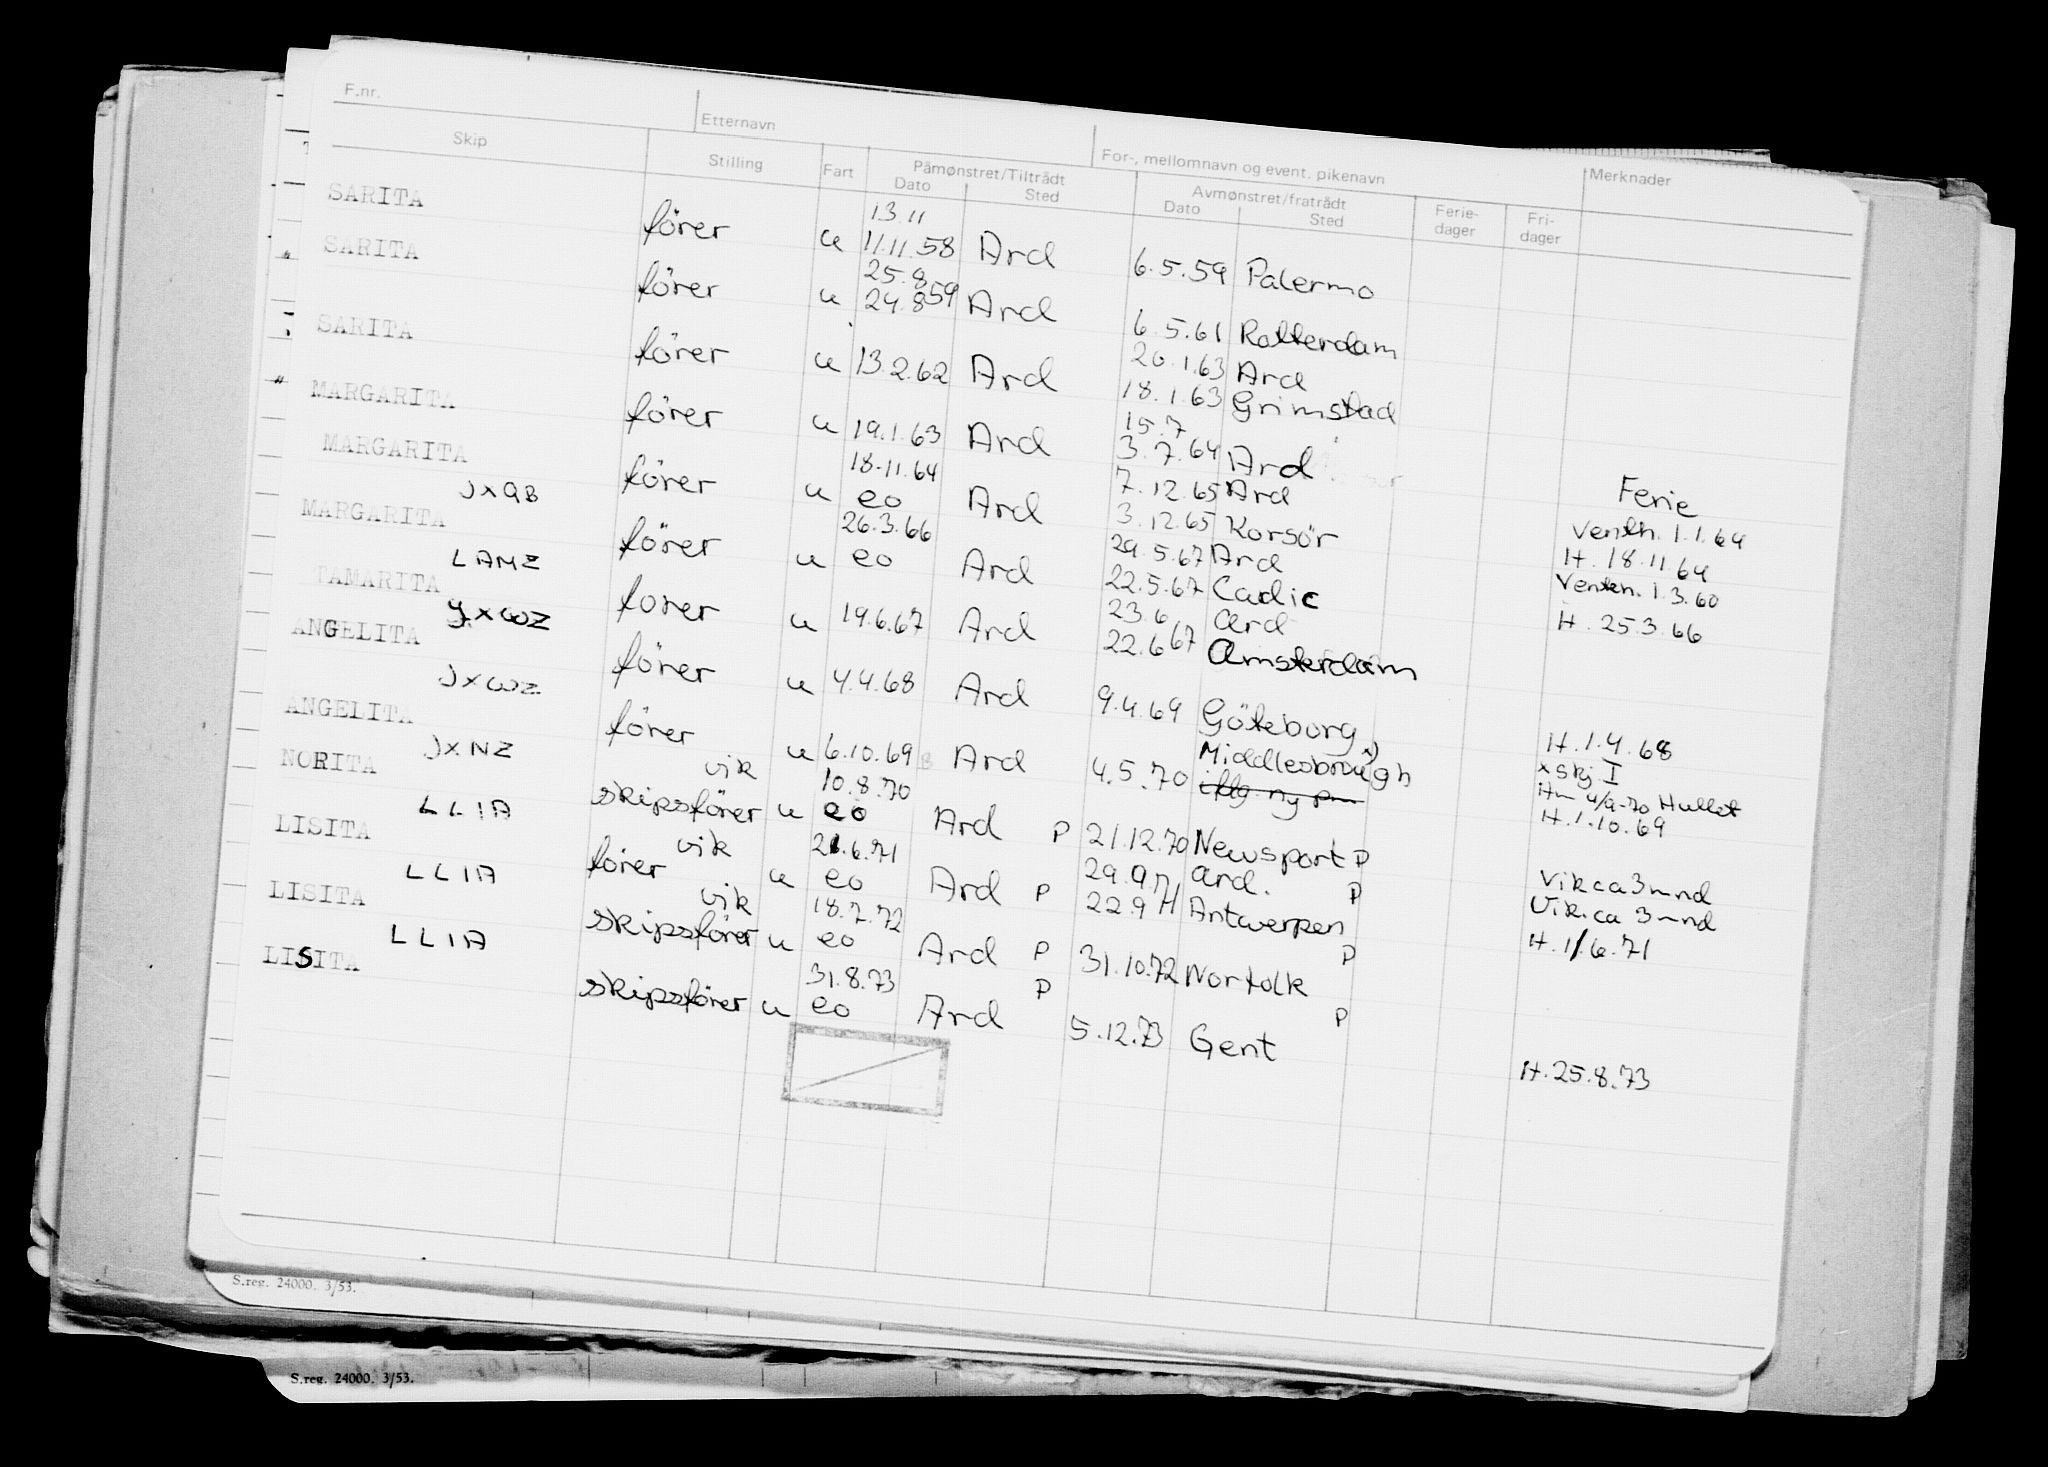 F.nr. Etternavn For-, mellomnavn og event. pikenavn
Skip Stilling Fart Påmønstret/Tiltrådt Dato Sted Avmønstret/fratrådt Dato Sted Ferie-dager Fri-dager Merknader
SARITA
13.11
förer u 11.11.58 Ard 6.5.59 Palermo
SARITA
25.8
förer u 24.8 59 Ard 6.5.61 Rotterdam
SARITA
20.1.63 Ard
förer u 13.2.62 Ard 18.1.63 Grimstad
MARGARITA
15.7
förer u 19.1.63 Ard 3.7.64 Ard
MARGARITA
18.11.64 7.12.65 Ard Ferie
JXQB förer u eo Ard 3.12.65 Korsör Venth. 1.1.64
MARGARITA
26.3.66 29.5.67 Ard H. 18.11.64
LAMZ förer u eo Ard 22.5.67 Cadic Venten. 1.3.60
TAMARITA
23.6 Ard
JXWZ forer u 19.6.67 Ard 22.6 67 Amsterdam H. 25.3.66
ANGELITA
JXWZ förer u 4.4.68 Ard 9.4.69 Göteborg H.1.4.68
ANGELITA
Middlesbrough x) x skj I
JXNZ förer u 6.10.69 Ard 4.5.70 4/9-70 Hullet
H.1.10.69
NORITA
vik 10.8.70
LLIA skipsförer u eo Ard P 21.12.70 Newsport P Vik ca 3 mnd
LISITA
vik 21.6.71 29.9.71 Ard. Vik. ca 3 mnd
LLIA forer u eo Ard P 22.9 71 Antwerpen P H.1/6.71
LISITA
vik 18.7.72
LLIA skipsförer u eo Ard P 31.10.72 Norfolk P
LISITA
31.8.73 P
skipsförer u eo Ard 5.12.73 Gent P H.25.8.73
S.reg. 24000. 3/53.
S.reg. 24000. 3/53.